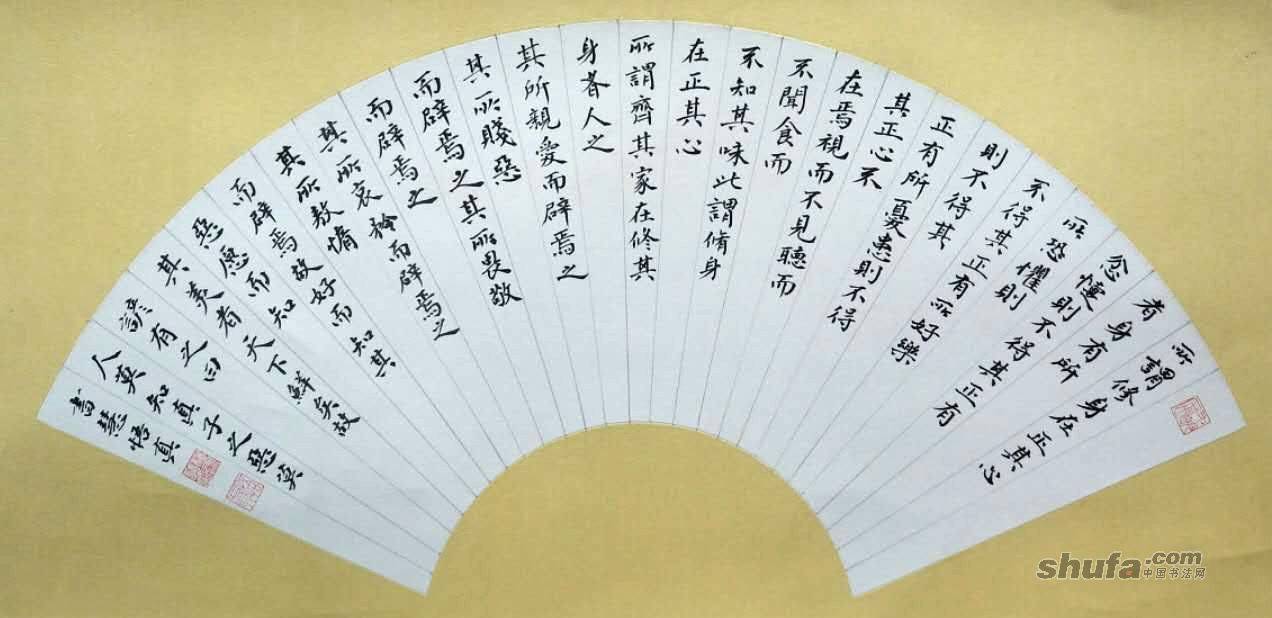 所謂修身在正其心
者身有所
忿懥則不得其正有
所恐懼則
不得其正有所好樂
則不得其
正有所憂患則不得
其正心不
在焉視而不見聽而
不聞食而
不知其味此謂脩身
在正其心
所謂齊其家在修其
身者人之
其所親愛而辟焉之
其所賤惡
而辟焉之其所畏敬
而辟焉之
其所哀矜而辟焉之
其所敖惰
而辟焉故好而知其
惡惡而知
其美者天下鮮矣故
諺有之曰
人莫知其子之惡矣
書慧悟真
shufa.com
中国书法网